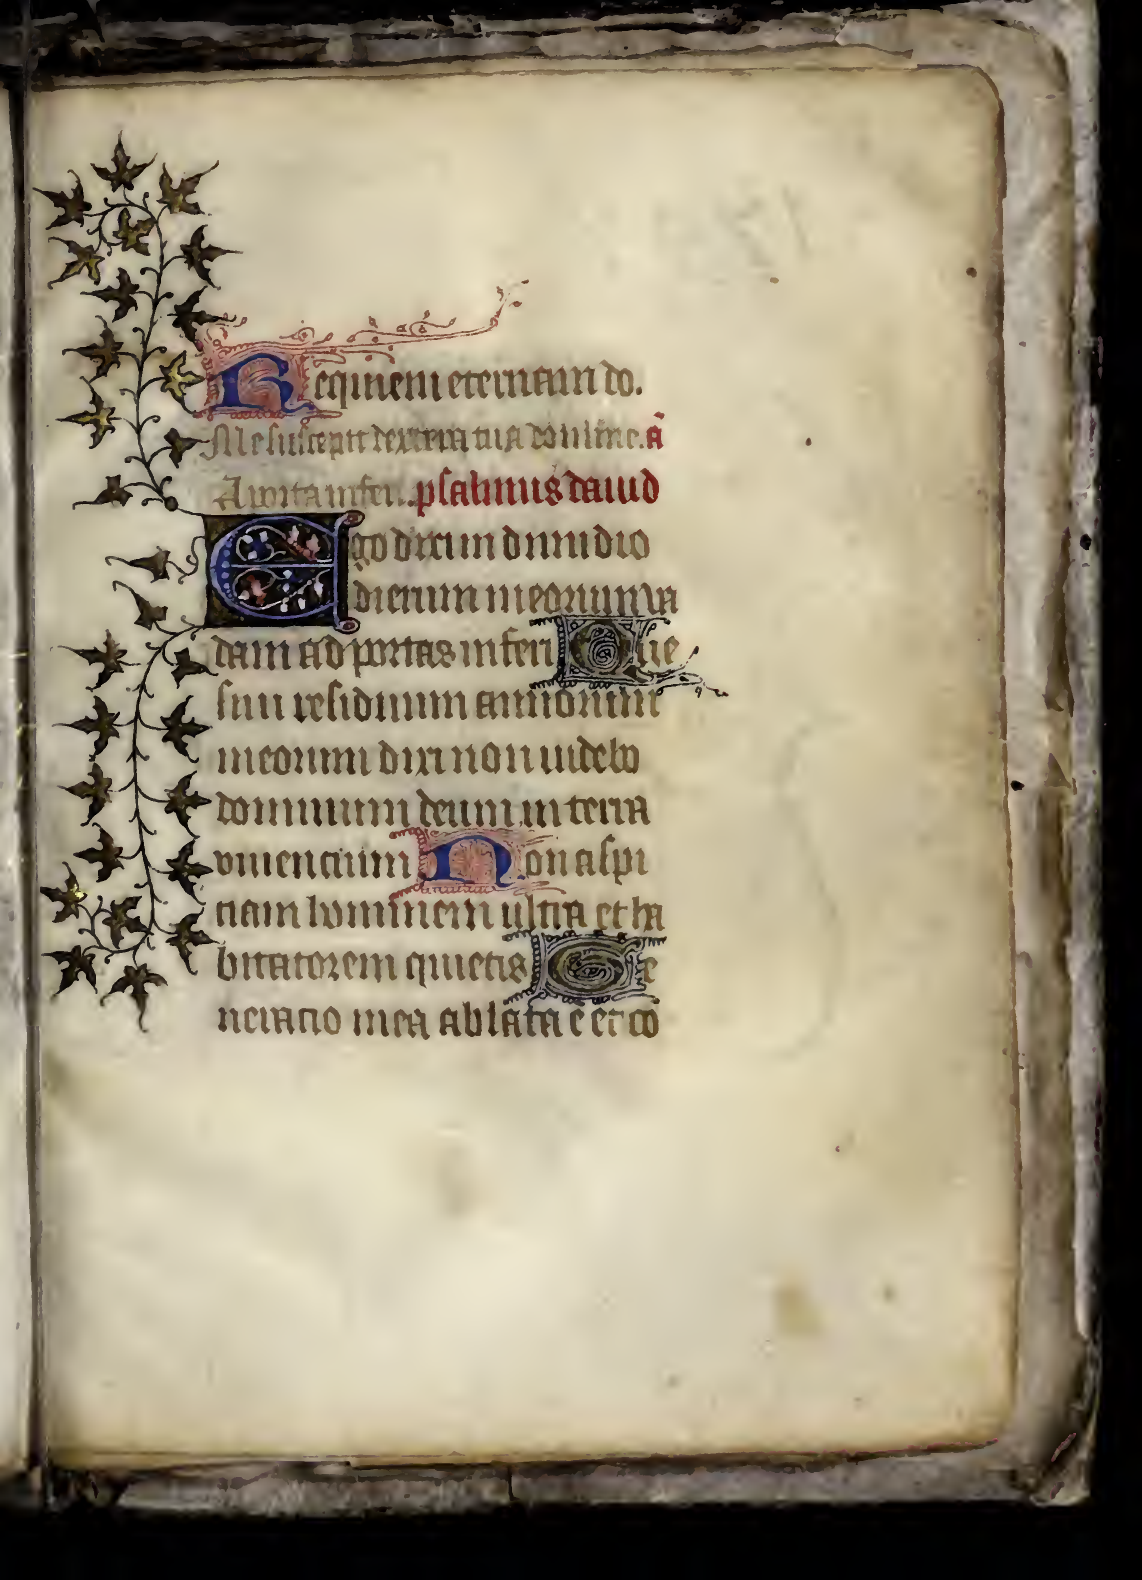 Requiem eternam do.
Me suscepit dextera tua domine. ā
A porta inferi. psalmus dauid
Ego dixi in dimidio
dierum meorum va
dam ad portas inferi Que
siui residuum annorum
meorum dixi non uidebo
dominum deum in terra
viuencium Non aspi
ciam hominem ultra et ha
bitatorem quietis Ge
neracio mea ablata ē et cō